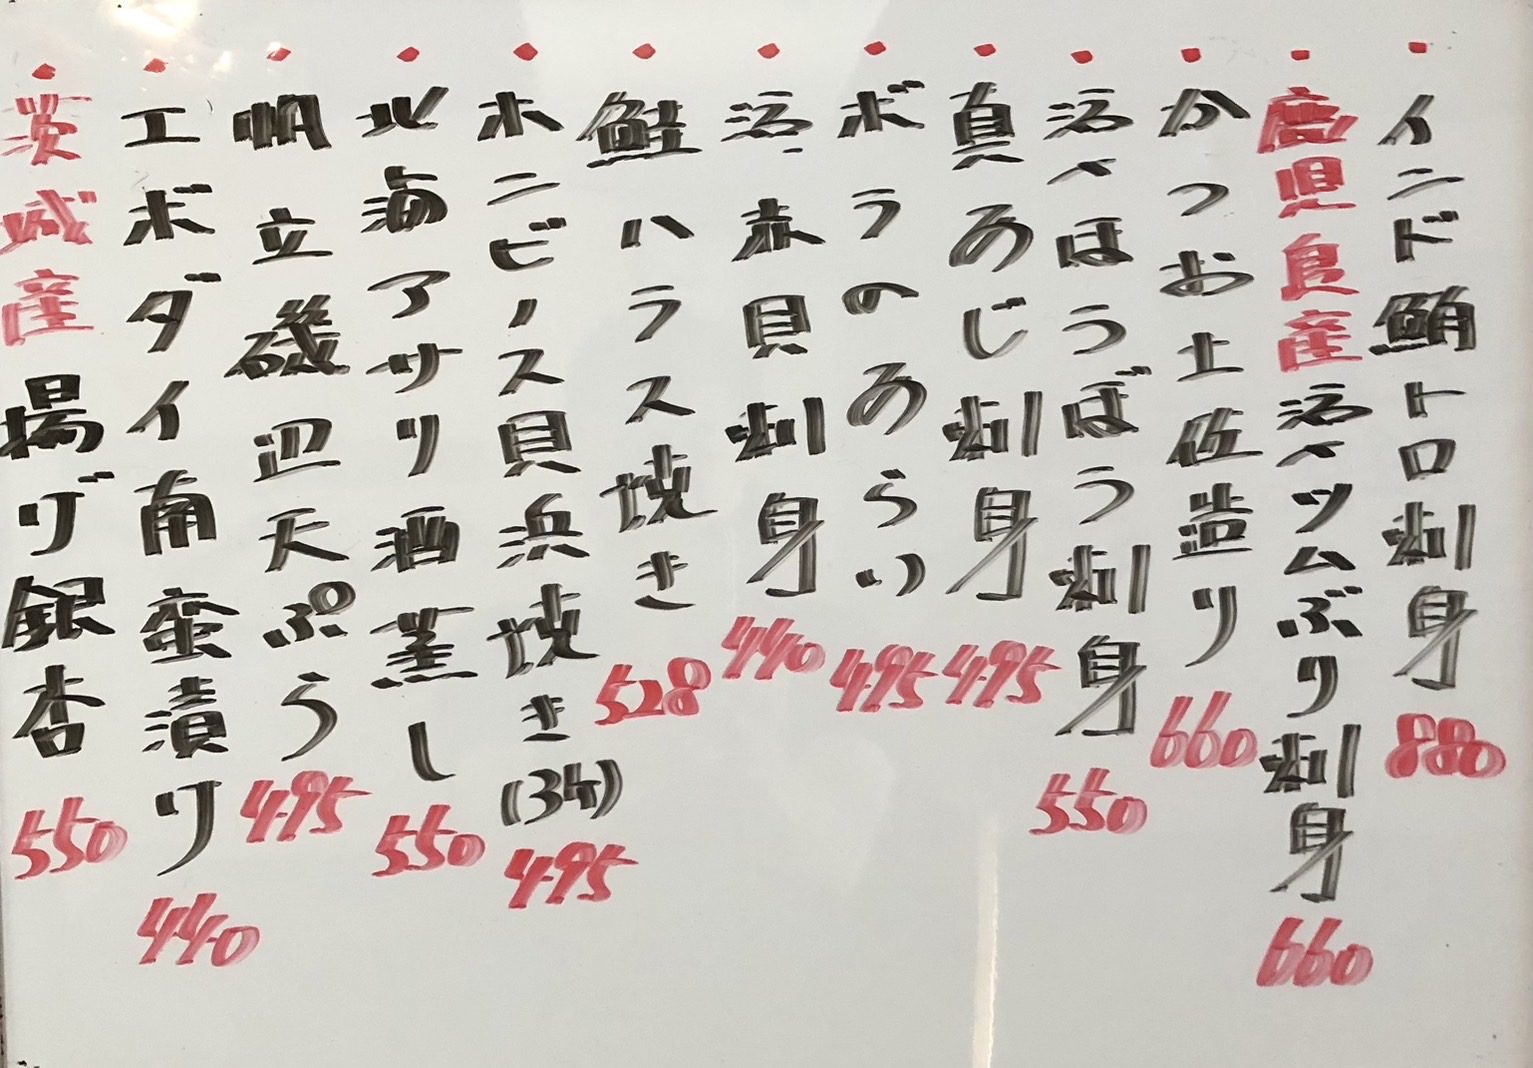 インド鮪トロ刺身 880
鹿児島産活〆ツムぶり刺身 660
かつお土佐造り 660
活〆ほうぼう刺身 550
真あじ刺身 495
ボラのあらい 495
活赤貝刺身 440
鮭ハラス焼き 528
ホンビノス貝浜焼き(3ケ) 495
北海アサリ酒蒸し 550
帆立磯辺天ぷら 495
エボダイ南蛮漬け 440
茨城産揚げ銀杏 550